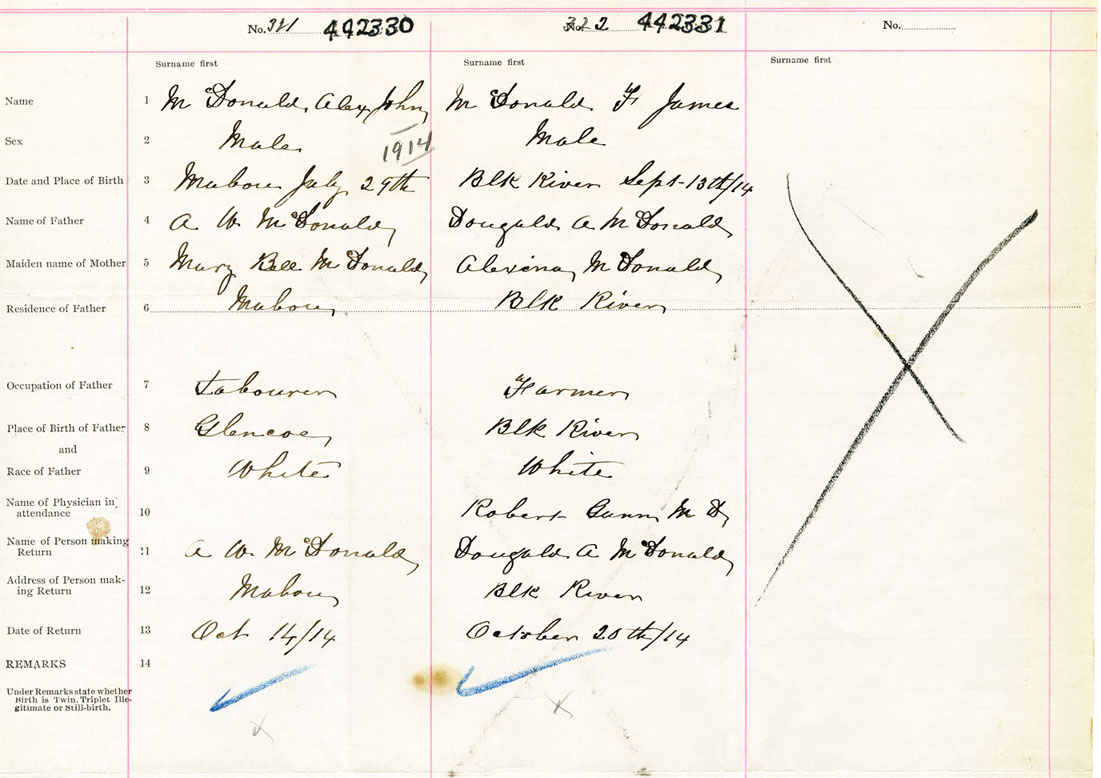 No. 321 442330 No. 322 442331 No.
Surname first Surname first Surname first
Name 1 McDonald, Alex John McDonald F James
Sex 2 Male 1914 Male
Date and Place of Birth 3 Mabou July 29th Blk River Sept-13th/14
Name of Father 4 A W McDonald Dougald A McDonald
Maiden name of Mother 5 Mary Bell McDonald Alexina McDonald
Residence of Father 6 Mabou Blk River
Occupation of Father 7 Labourer Farmer
Place of Birth of Father 8 Glencoe Blk River
and
Race of Father 9 White White
Name of Physician in
attendance 10 Robert Gunn M D
Name of Person making
Return 11 A W McDonald Dougald A McDonald
Address of Person mak-
ing Return 12 Mabou Blk River
Date of Return 13 Oct 14/14 October 20th/14
REMARKS 14
Under Remarks state whether
Birth is Twin, Triplet Ille-
gitimate or Still-birth.